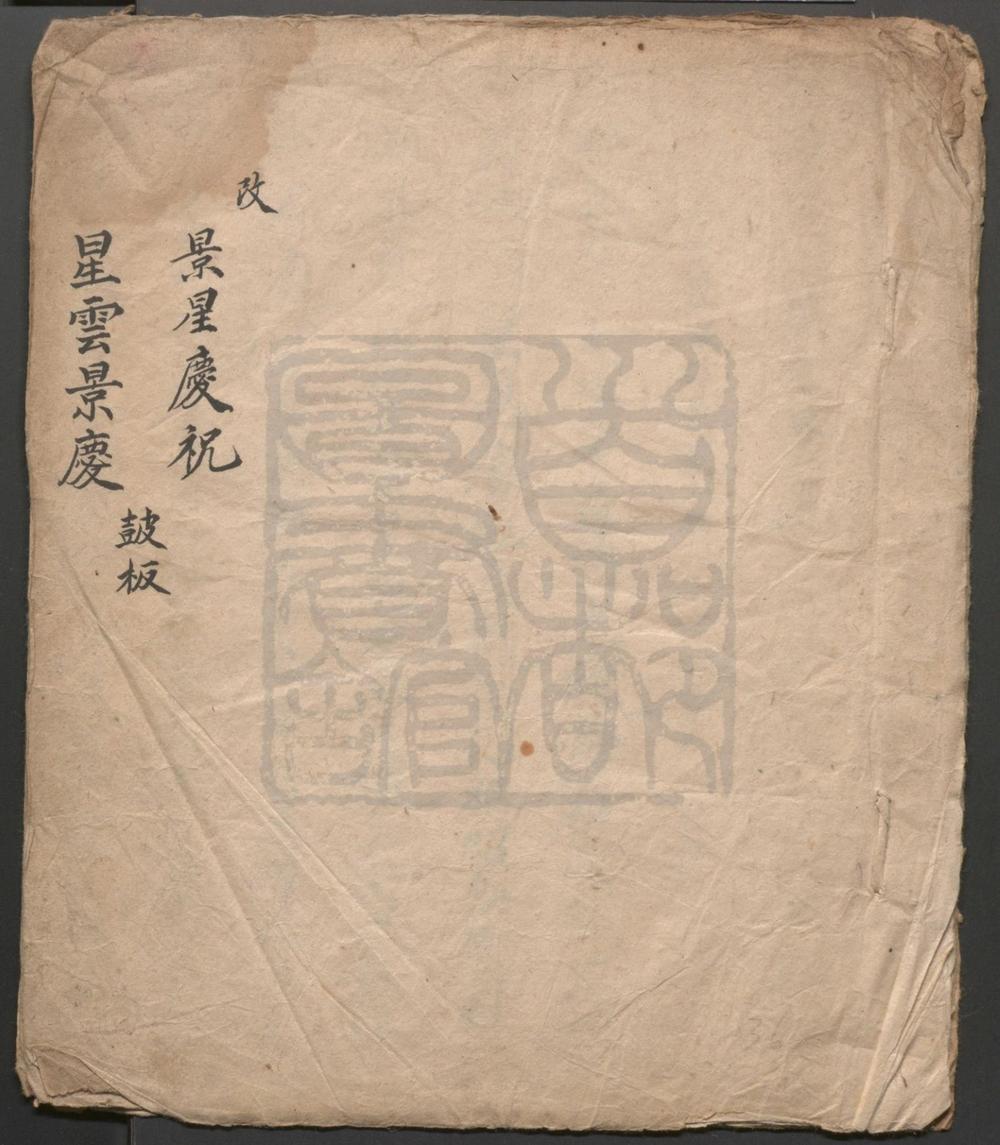 改
景星慶祝
星雲景慶
鼓板